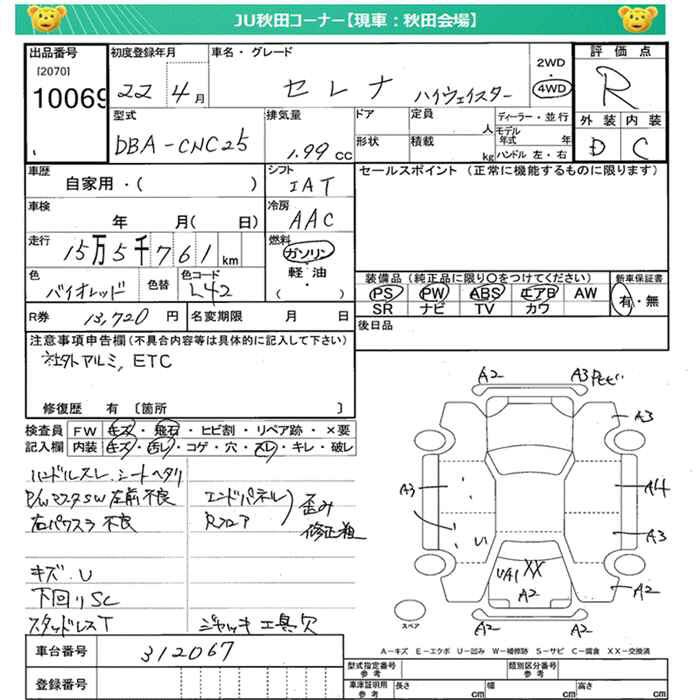 JU秋田コーナー【現車：秋田会場】
出品番号
[2070]
10069
初度登録年月
22 4月
車名・グレード
セレナ ハイウェイスター
2WD・4WD
評価点
R
外装 内装
D C
型式
DBA-CNC25
排気量
1.99 cc
ドア
形状
定員 人
積載 kg
ディーラー・並行
モデル年式 年
ハンドル 左・右
車歴
自家用・( )
シフト
IAT
セールスポイント（正常に機能するものに限ります）
車検
年 月( 日)
冷房
AAC
走行
15万5千761km
燃料
ガソリン
軽・油
( ・ )
色
バイオレッド
色替
色コード
L42
装備品（純正品に限り○をつけてください）
PS PW ABS エアB AW
SR ナビ TV カワ
新車保証書
有・無
R券 13,720円
名変期限 月 日
後日品
注意事項申告欄(不具合内容等は具体的に記入して下さい)
社外アルミ, ETC
修復歴 有 〔箇所 〕
検査員記入欄
FW キズ・飛石・ヒビ割・リペア跡・×要
内装 キズ・汚レ・コゲ・穴・スレ・キレ・破レ
ハンドルスレ.シートヘタリ
P/WマスタSW左前不良
右パワスラ不良
エンドパネル
Rフロア
歪み
修正極
キズ.U
下回りSC
スタッドレスT
ジャッキ工具欠
A2
A3
A3
A3
A4
A3
U
UA1
XX
A2
A2
A2
A2
スペア
A－キズ E－エクボ U－凹み W－補修跡 S－サビ C－腐食 XX－交換済
車台番号
312067
登録番号
型式指定番号
参考
類別区分番号
参考
車庫証明用
参考
長さ cm
幅 cm
高さ cm